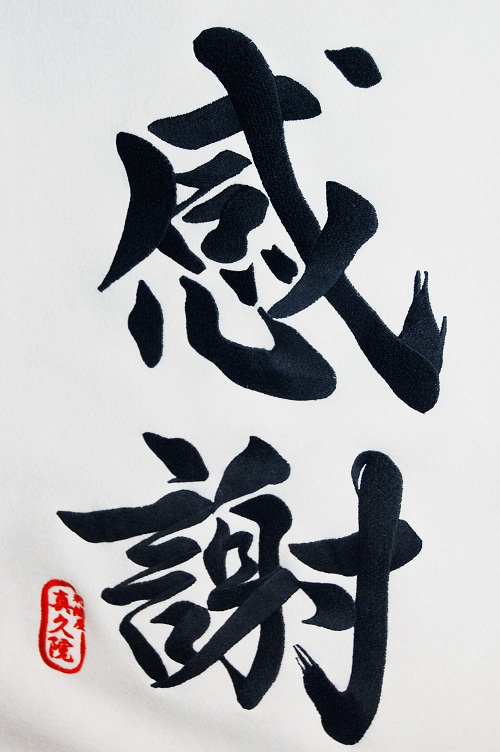 感謝
真久院